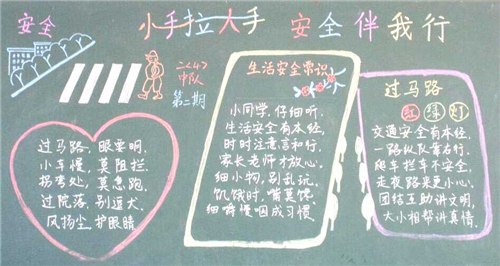 安全
小手拉大手 安全伴我行
二〈4〉
中队
第二期
过马路,眼要明,
小车慢,莫阻拦.
拐弯处,莫急跑.
过院落,别逗犬.
风扬尘,护眼睛
生活安全常识
小同学,仔细听.
生活安全有本经,
时时注意言和行.
家长老师才放心.
细小物,别乱玩.
饥饿时,嘴莫馋.
细嚼慢咽成习惯.
过马路
红绿灯
交通安全有本经.
一路队伍靠右行.
爬车拦车不安全.
走夜路来更小心.
团结互助讲文明,
大小相帮讲真情.